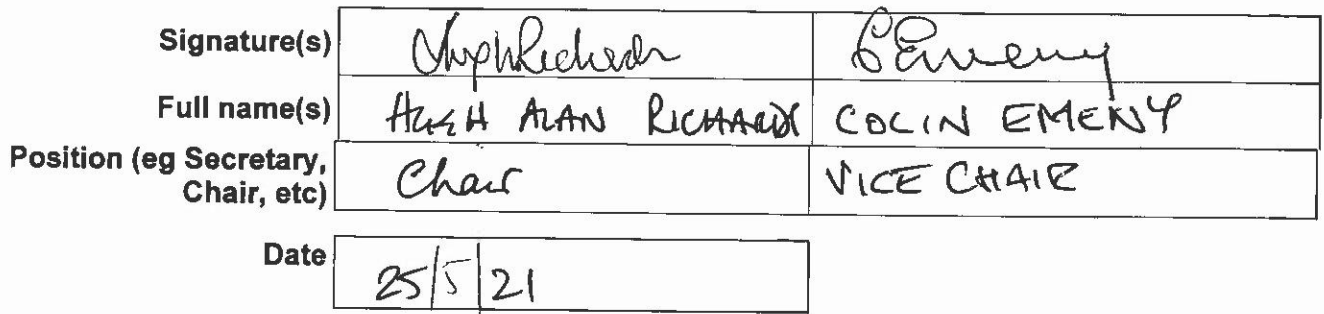 Signature(s) HughRichards CEmeny
Full name(s) HUGH ALAN RICHARDS COLIN EMENY
Position (eg Secretary,
Chair, etc) Chair VICE CHAIR
Date 25/5/21